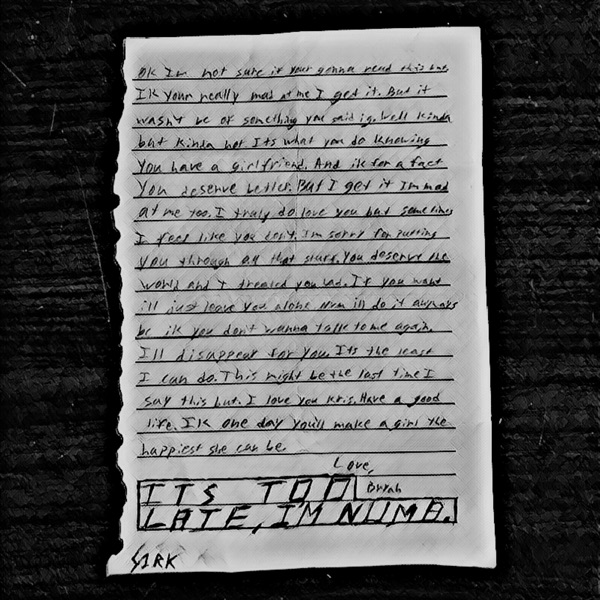 Ok Im not sure if your gonna read this but.
IK your really mad at me I get it. But it
wasnt bc of something you said ig. Well kinda
but kinda not Its what you do knowing
You have a girlfriend. And ik for a fact
You deserve better. But I get it Im mad
at me too. I truly do love you but sometimes
I feel like you don't. Im sorry for putting
you through all that stuff. You deserve the
world and I treated you bad. If you want
ill just leave you alone ill do it anyways
bc ik you don't wanna talk to me again.
I'll disappear for you. Its the least
I can do. This might be the last time I
say this but. I love you Kris. Have a good
life. IK one day you'll make a girl the
happiest she can be.
Love,
Bryah
ITS TOO
LATE, I'M NUMB.